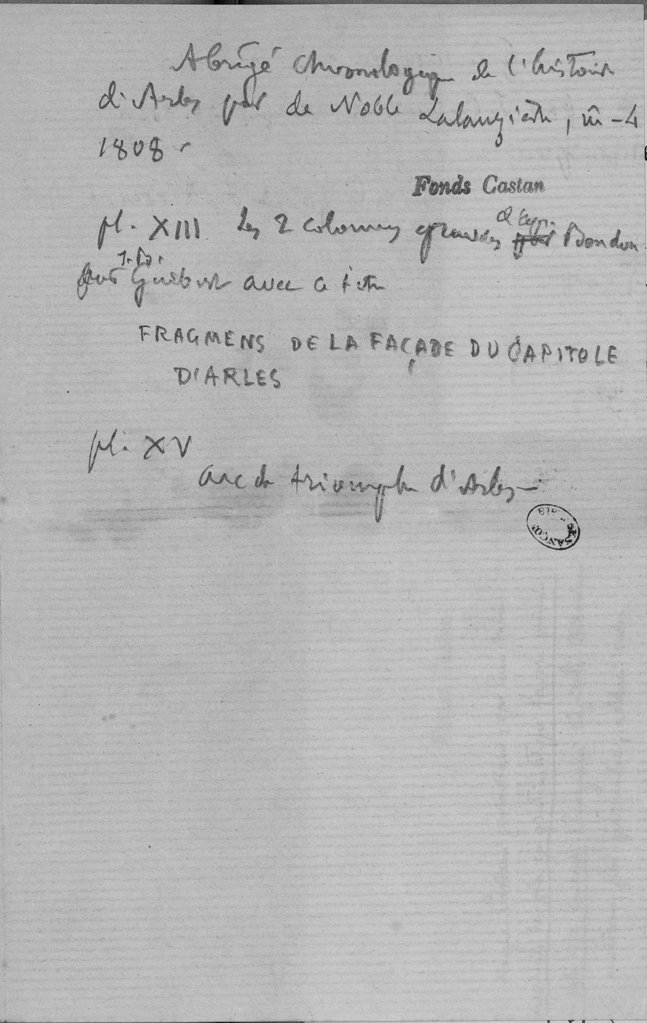 Abrégé chronologique de l'histoire
d'Arles par de Noble Lalauzière, in-4
1808.
Fonds Castan
pl. XIII les 2 colonnes gravées
par J. Bte. Guibert avec ce titre
FRAGMENS DE LA FAÇADE DU CAPITOLE
D'ARLES
pl. XV
arc de triomphe d'Arles